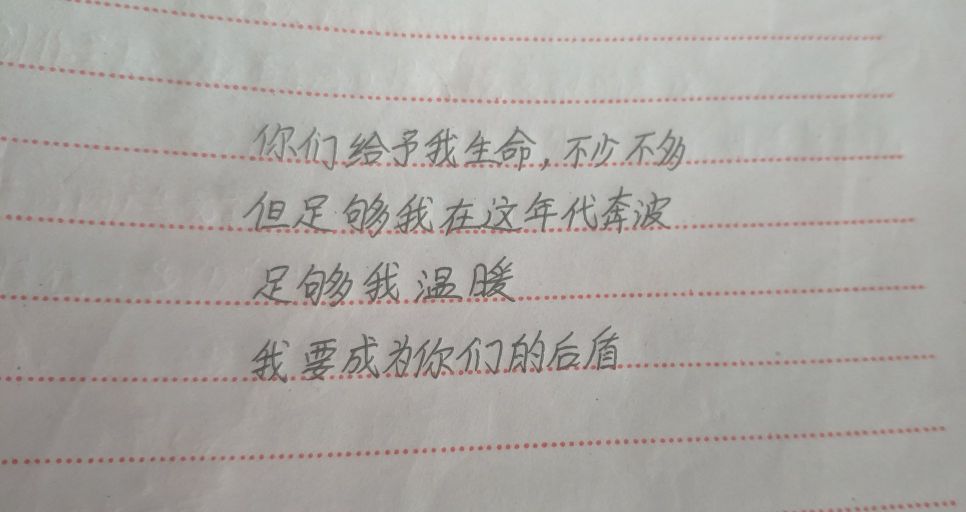 你们给予我生命,不少不多
但足够我在这年代奔波
足够我温暖
我要成为你们的后盾